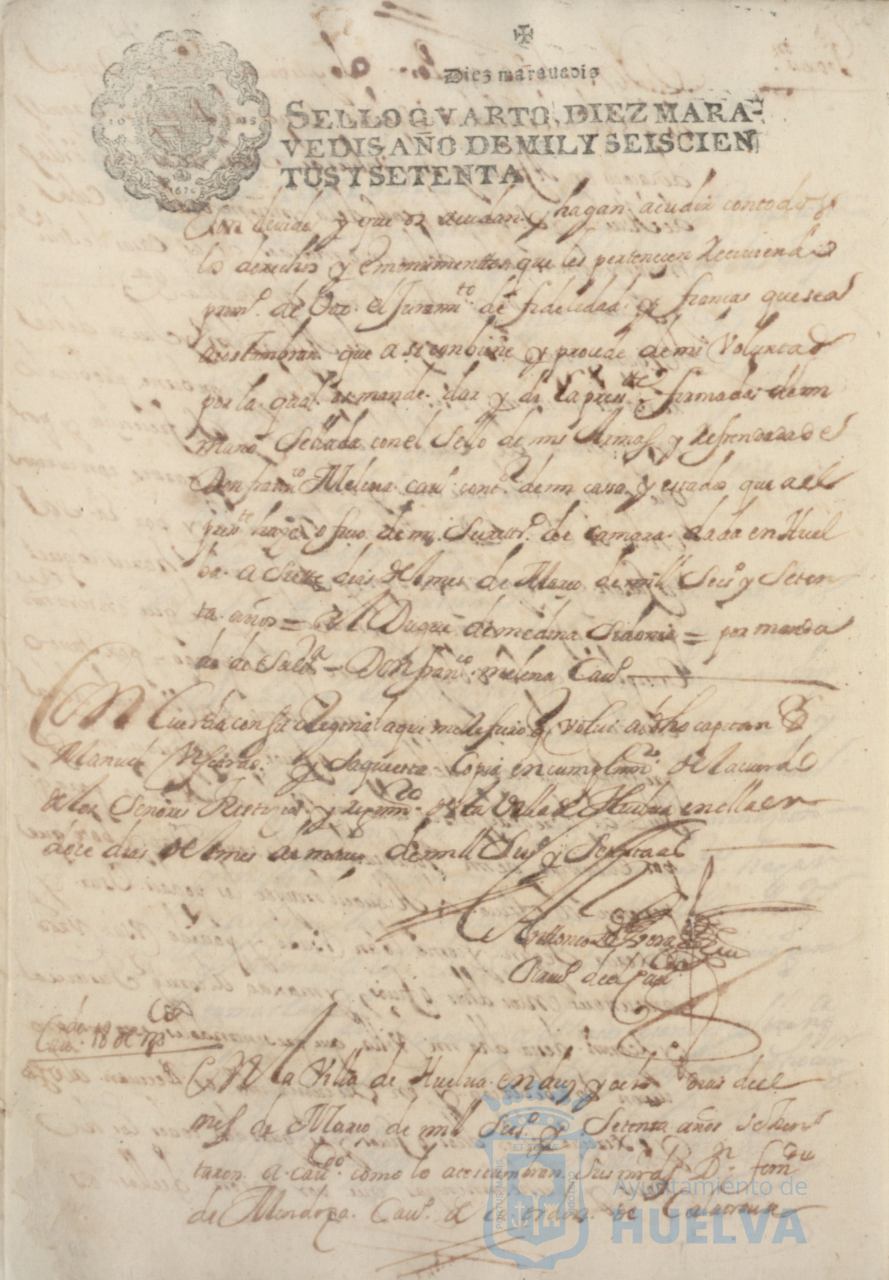 Diez marauedis
SELLO QVARTO, DIEZ MARA-
VEDIS AÑO DE MIL Y SEISCIEN
TOS Y SETENTA
1670
y que os acudan y hagan acudir con todos
los derechos y emolumentos que les pertenecen
de el Juramto de fidelidad y fianças que se a
acostumbran que asi conbiene y prouede de mi Voluntad
por la qual mande dar y di la preste firmada de mi
mano Sellada con el Sello de mis Armas y Refrendada de
Don franco Melena cauo contor de mi cassa y estados que a el
preste haze ofizio de mi Secretro de camara dada en Huel
ba a Siete dias del mes de Março de mill Seiso y Seten
ta años = El Duque de medina Sidonia = por manda
do de Su Exa = Don franco melena Cauo
Con Cuerda con su Original a que me Refiero y volui a dho capitan D
Manuel y Saque esta Copia en cumplimto del acuerdo
de los Señores y de la Villa de Huelua en ella en
doce dias del mes de março de mill Seiso y Setenta as
Cauo 18 de mço
En la Villa de Huelua en dies y ocho dias de el
mes de Março de mill Seiso y Setenta años se Jun
taron a cauo como lo acostumbran Sus mrds Dn ferndo
de Mendoza Cauo de la orden de Calatraua
Ayuntamiento de
HUELVA